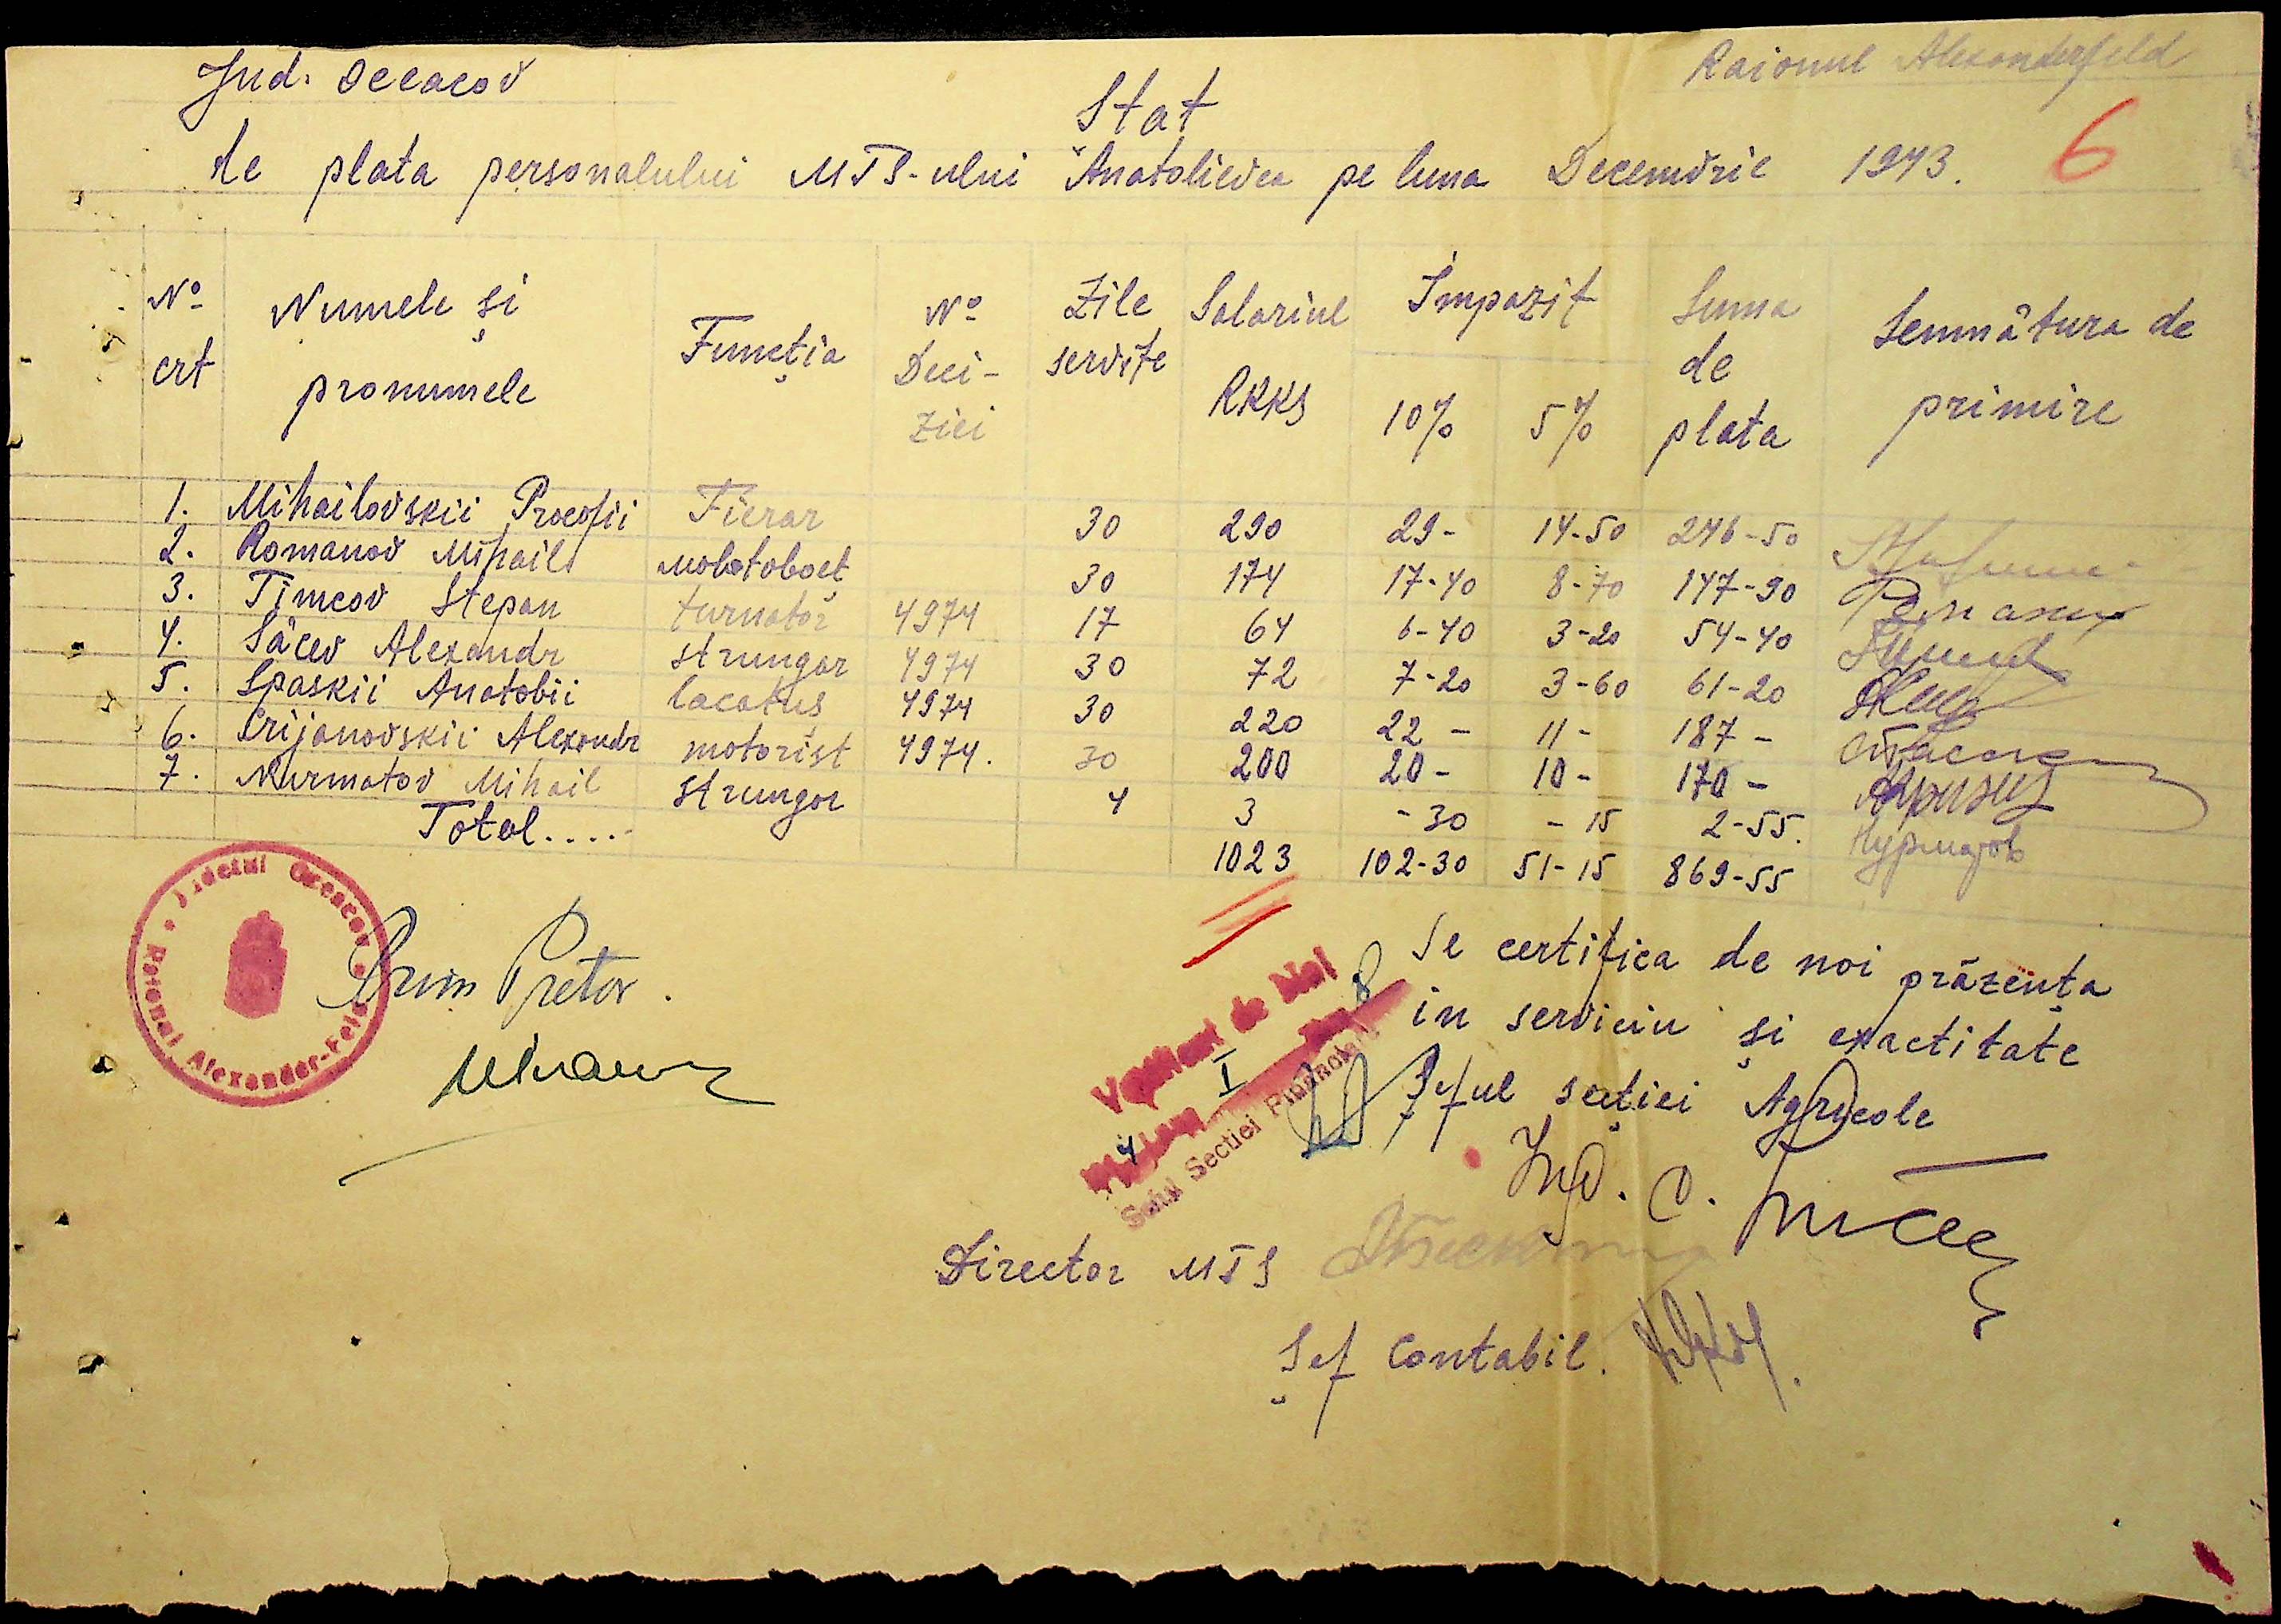 Jud. Oceacov
Raionul Alexanderfeld
Stat
6
de plata personalului MTS-ului "Anatolievca pe luna Decemvrie 1943.
No crt Numele și pronumele Funcția No Deciziei Zile servite Salariul RKKS Impozit 10% 5% Suma de plata Semnătura de primire
1. Mihailovskii Procofii Fierar 30 290 29- 14-50 246-50
2. Romanov Mihail molotoboeț 30 174 17-40 8-70 147-90 Романов
3. Timcov Stepan turnator 4974 17 64 6-40 3-20 54-40
4. Sâcev Alexandr strungar 4974 30 72 7-20 3-60 61-20
5. Spaskii Anatolii lacatuș 4974 30 220 22- 11- 187-
6. Crijanovskii Alexandr motorist 4974. 30 200 20- 10- 170-
7. Nurmatov Mihail strungar 4 3 -30 -15 2-55. Нурматов
Total..... 1023 102-30 51-15 869-55
Judetul Oceacov
Raional Alexander-Feld
Prim Pretor.
Se certifica de noi prăzența
in serviciu și exactitate
Șeful secției Agricole
Ing. C.
Verificat de Noi
I
4
Seful Sectiei Financiare
Director MTS
Șef Contabil.